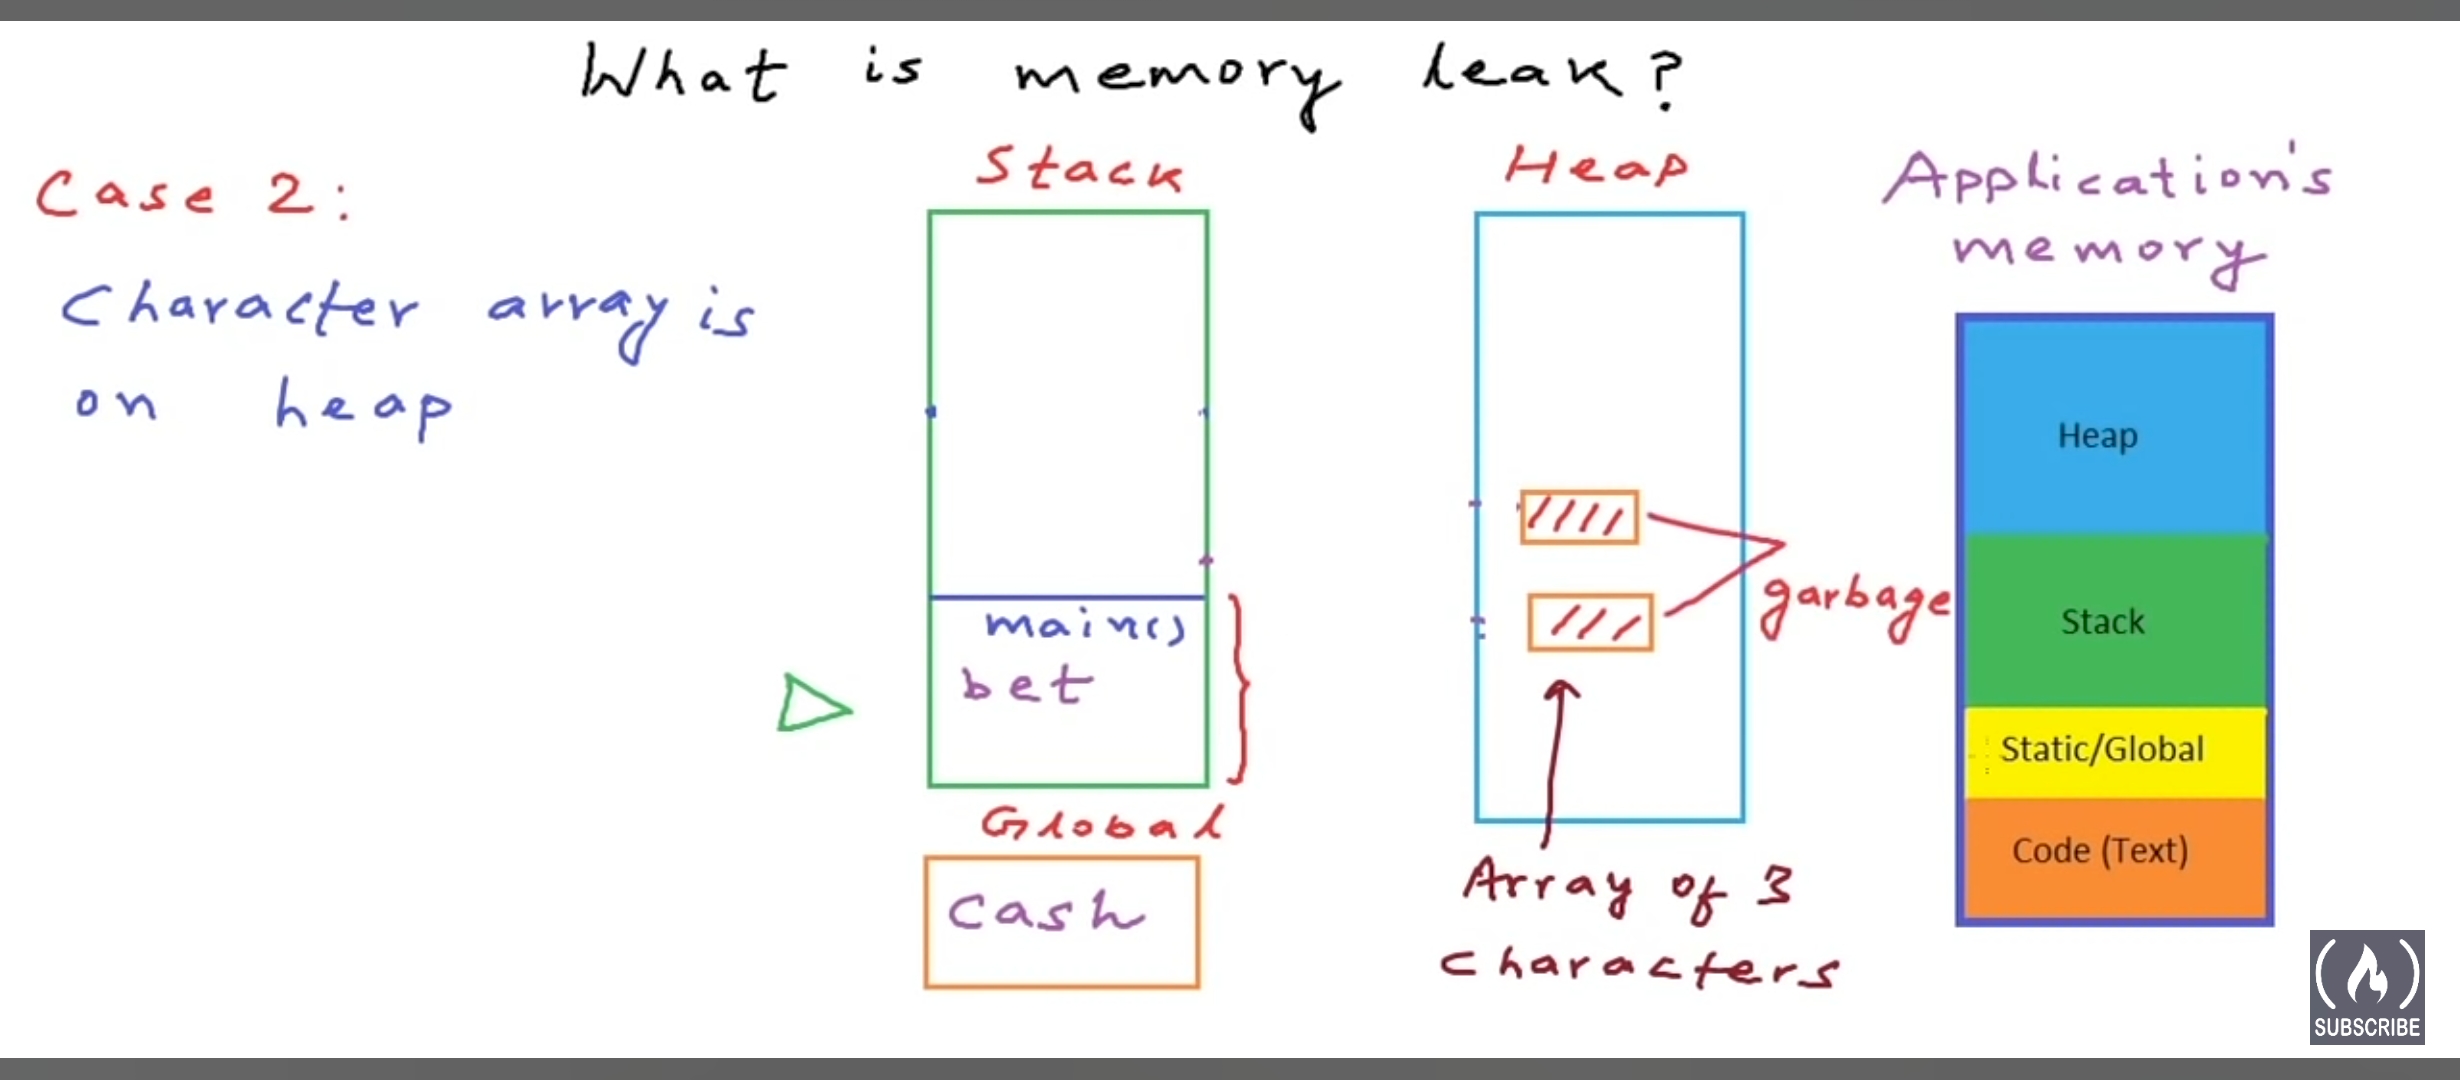 What is memory leak?
Case 2:
Character array is
on heap
Stack
main()
bet
Global
Cash
Heap
garbage
Array of 3
characters
Application's
memory
Heap
Stack
Static/Global
Code (Text)
SUBSCRIBE